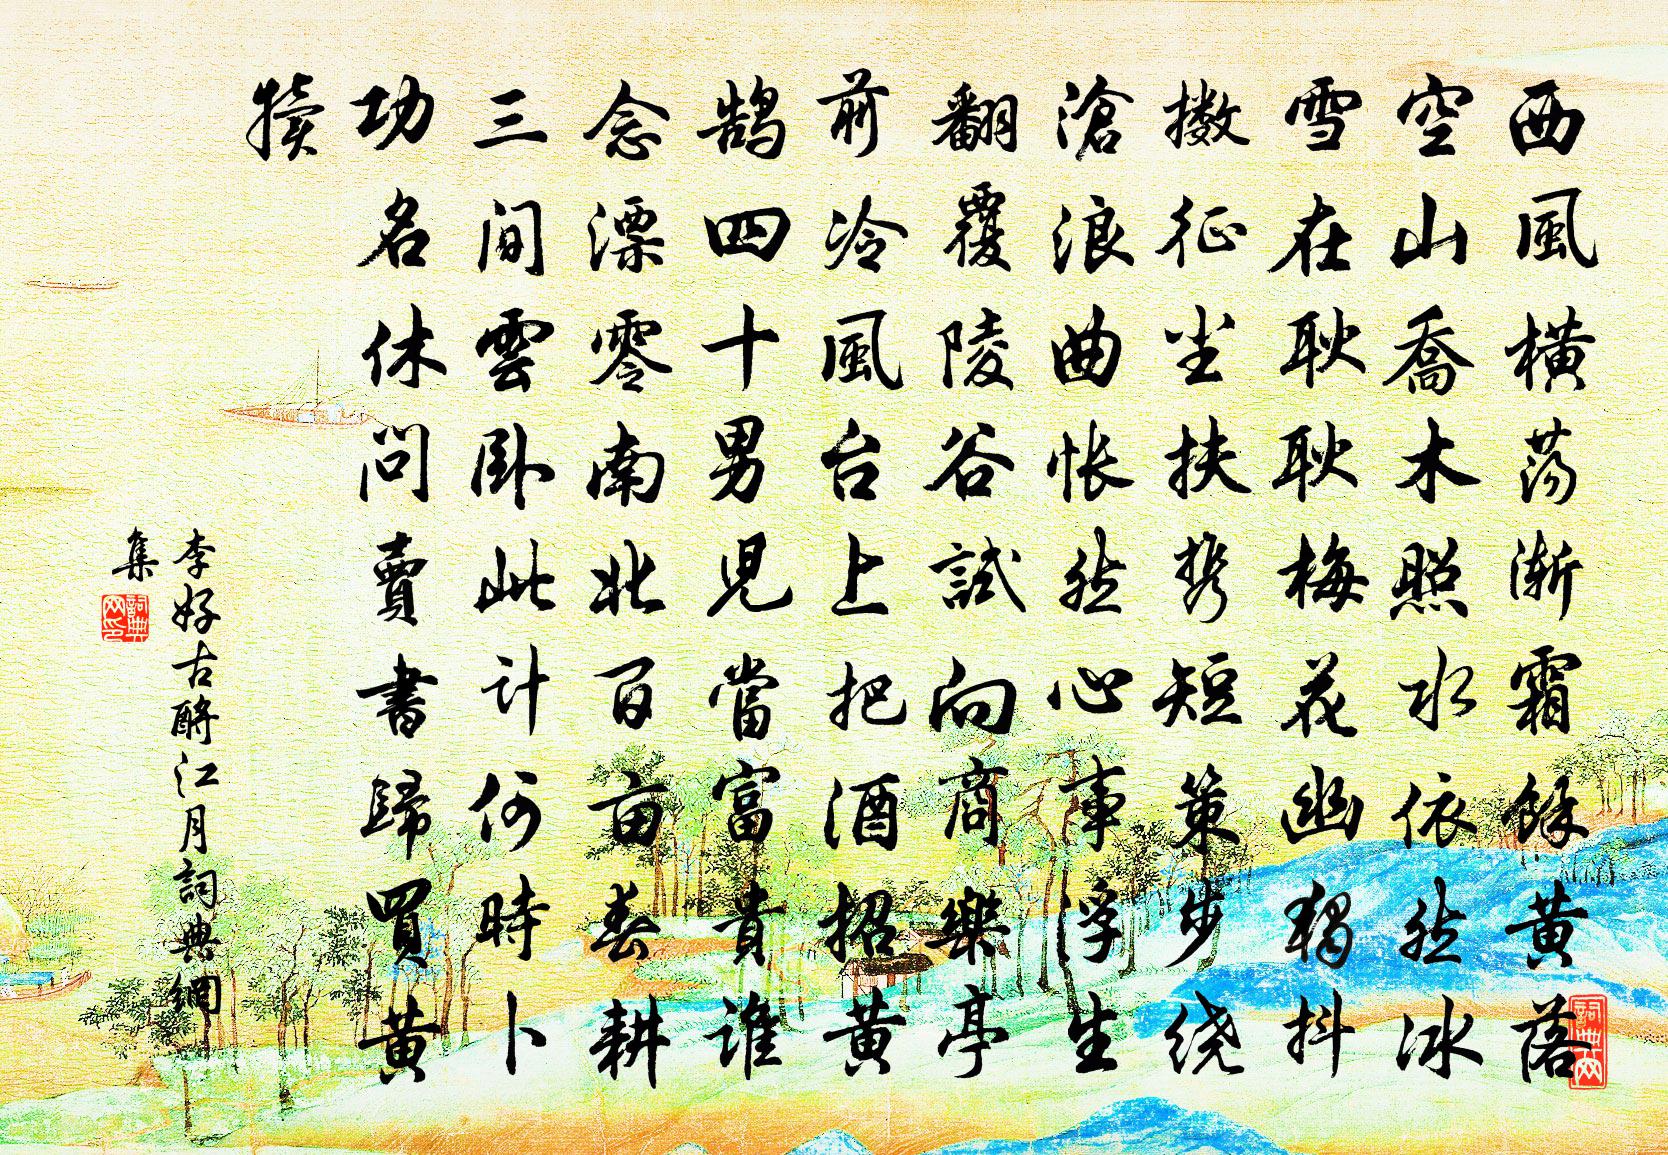 西風橫蕩漸霜餘黃落
空山喬木照水依然冰
雪在耿耿梅花幽獨抖
擻征尘扶携短策步绕
滄浪曲悵然心事浮生
翻覆陵谷試向商樂亭
前冷風台上把酒招黃
鵠四十男兒當富貴誰
念漂零南北百亩春耕
三間雲臥此計何時卜
功名休問賣書歸買黃
犢
李好古酹江月詞典網
集
詞典网印
詞典网